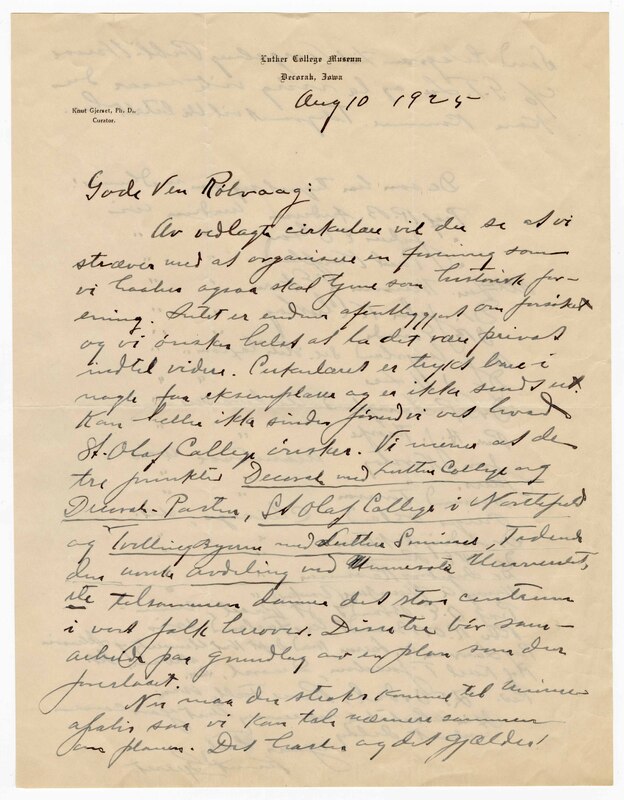 Luther College Museum
Decorah, Iowa
Knut Gjerset, Ph. D.,
Curator.
Aug 10 1925
Gode Ven Rölvaag:
Av vedlagte cirkulære vil du se at vi
stræver med at organisere en forening som
vi haaber ogsaa skal tjene som historisk for-
ening. Intet er endnu offentliggjort om forsöket
og vi önsker helst at la det være privat
indtil videre. Cirkulæret er trykt bare i
nogle faa eksemplarer og er ikke sendt ut.
Kan heller ikke sendes förend vi vet hvad
St. Olaf College önsker. Vi mener at de
tre punkter Decorah med Luther College og
Decorah-Posten, St Olaf College i Northfield
og Tvillingbyerne med Luther Seminar, Tidende
den norske avdeling ved Minnesota Universitet,
tilsammen danner det store centrum
i vort folk herover. Disse tre bör sam-
arbeide paa grundlag av en plan som den
foreslaaet.
Nu maa du straks komme til Minne-
apolis saa vi kan tale nærmere sammen
om planen. Det haster og det gjælder